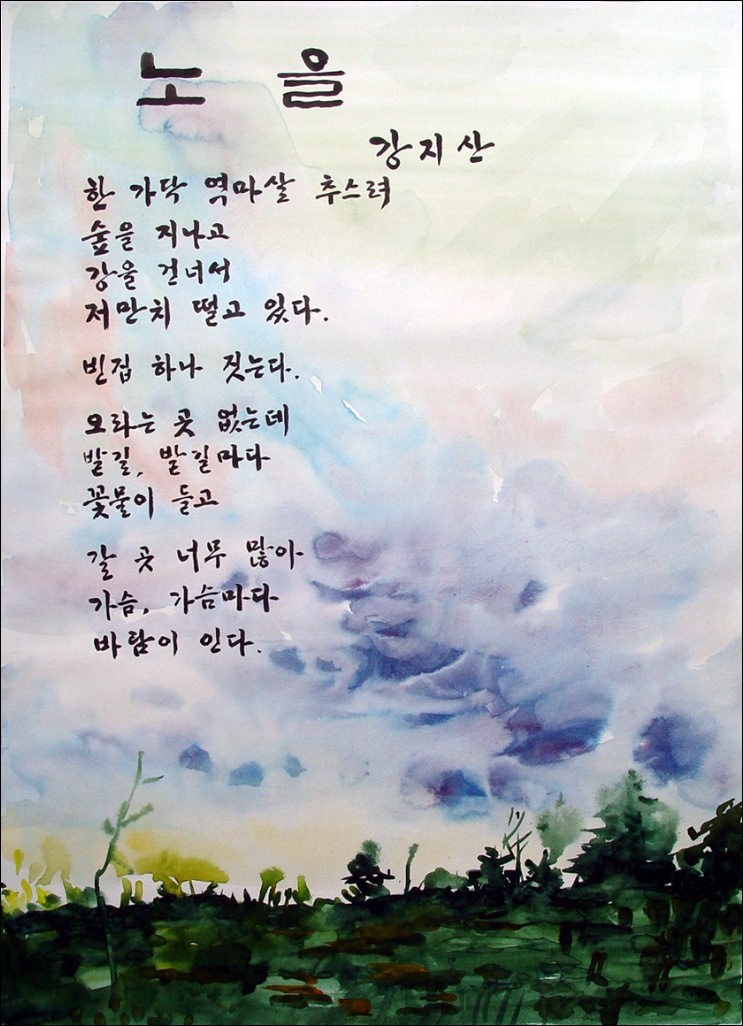 노을
강지산
한 가닥 역마살 추스려
숲을 지나고
강을 건너서
저만치 떨고 있다.
빈집 하나 짓는다.
오라는 곳 없는데
발길, 발길마다
꽃물이 들고
갈 곳 너무 많아
가슴, 가슴마다
바람이 인다.